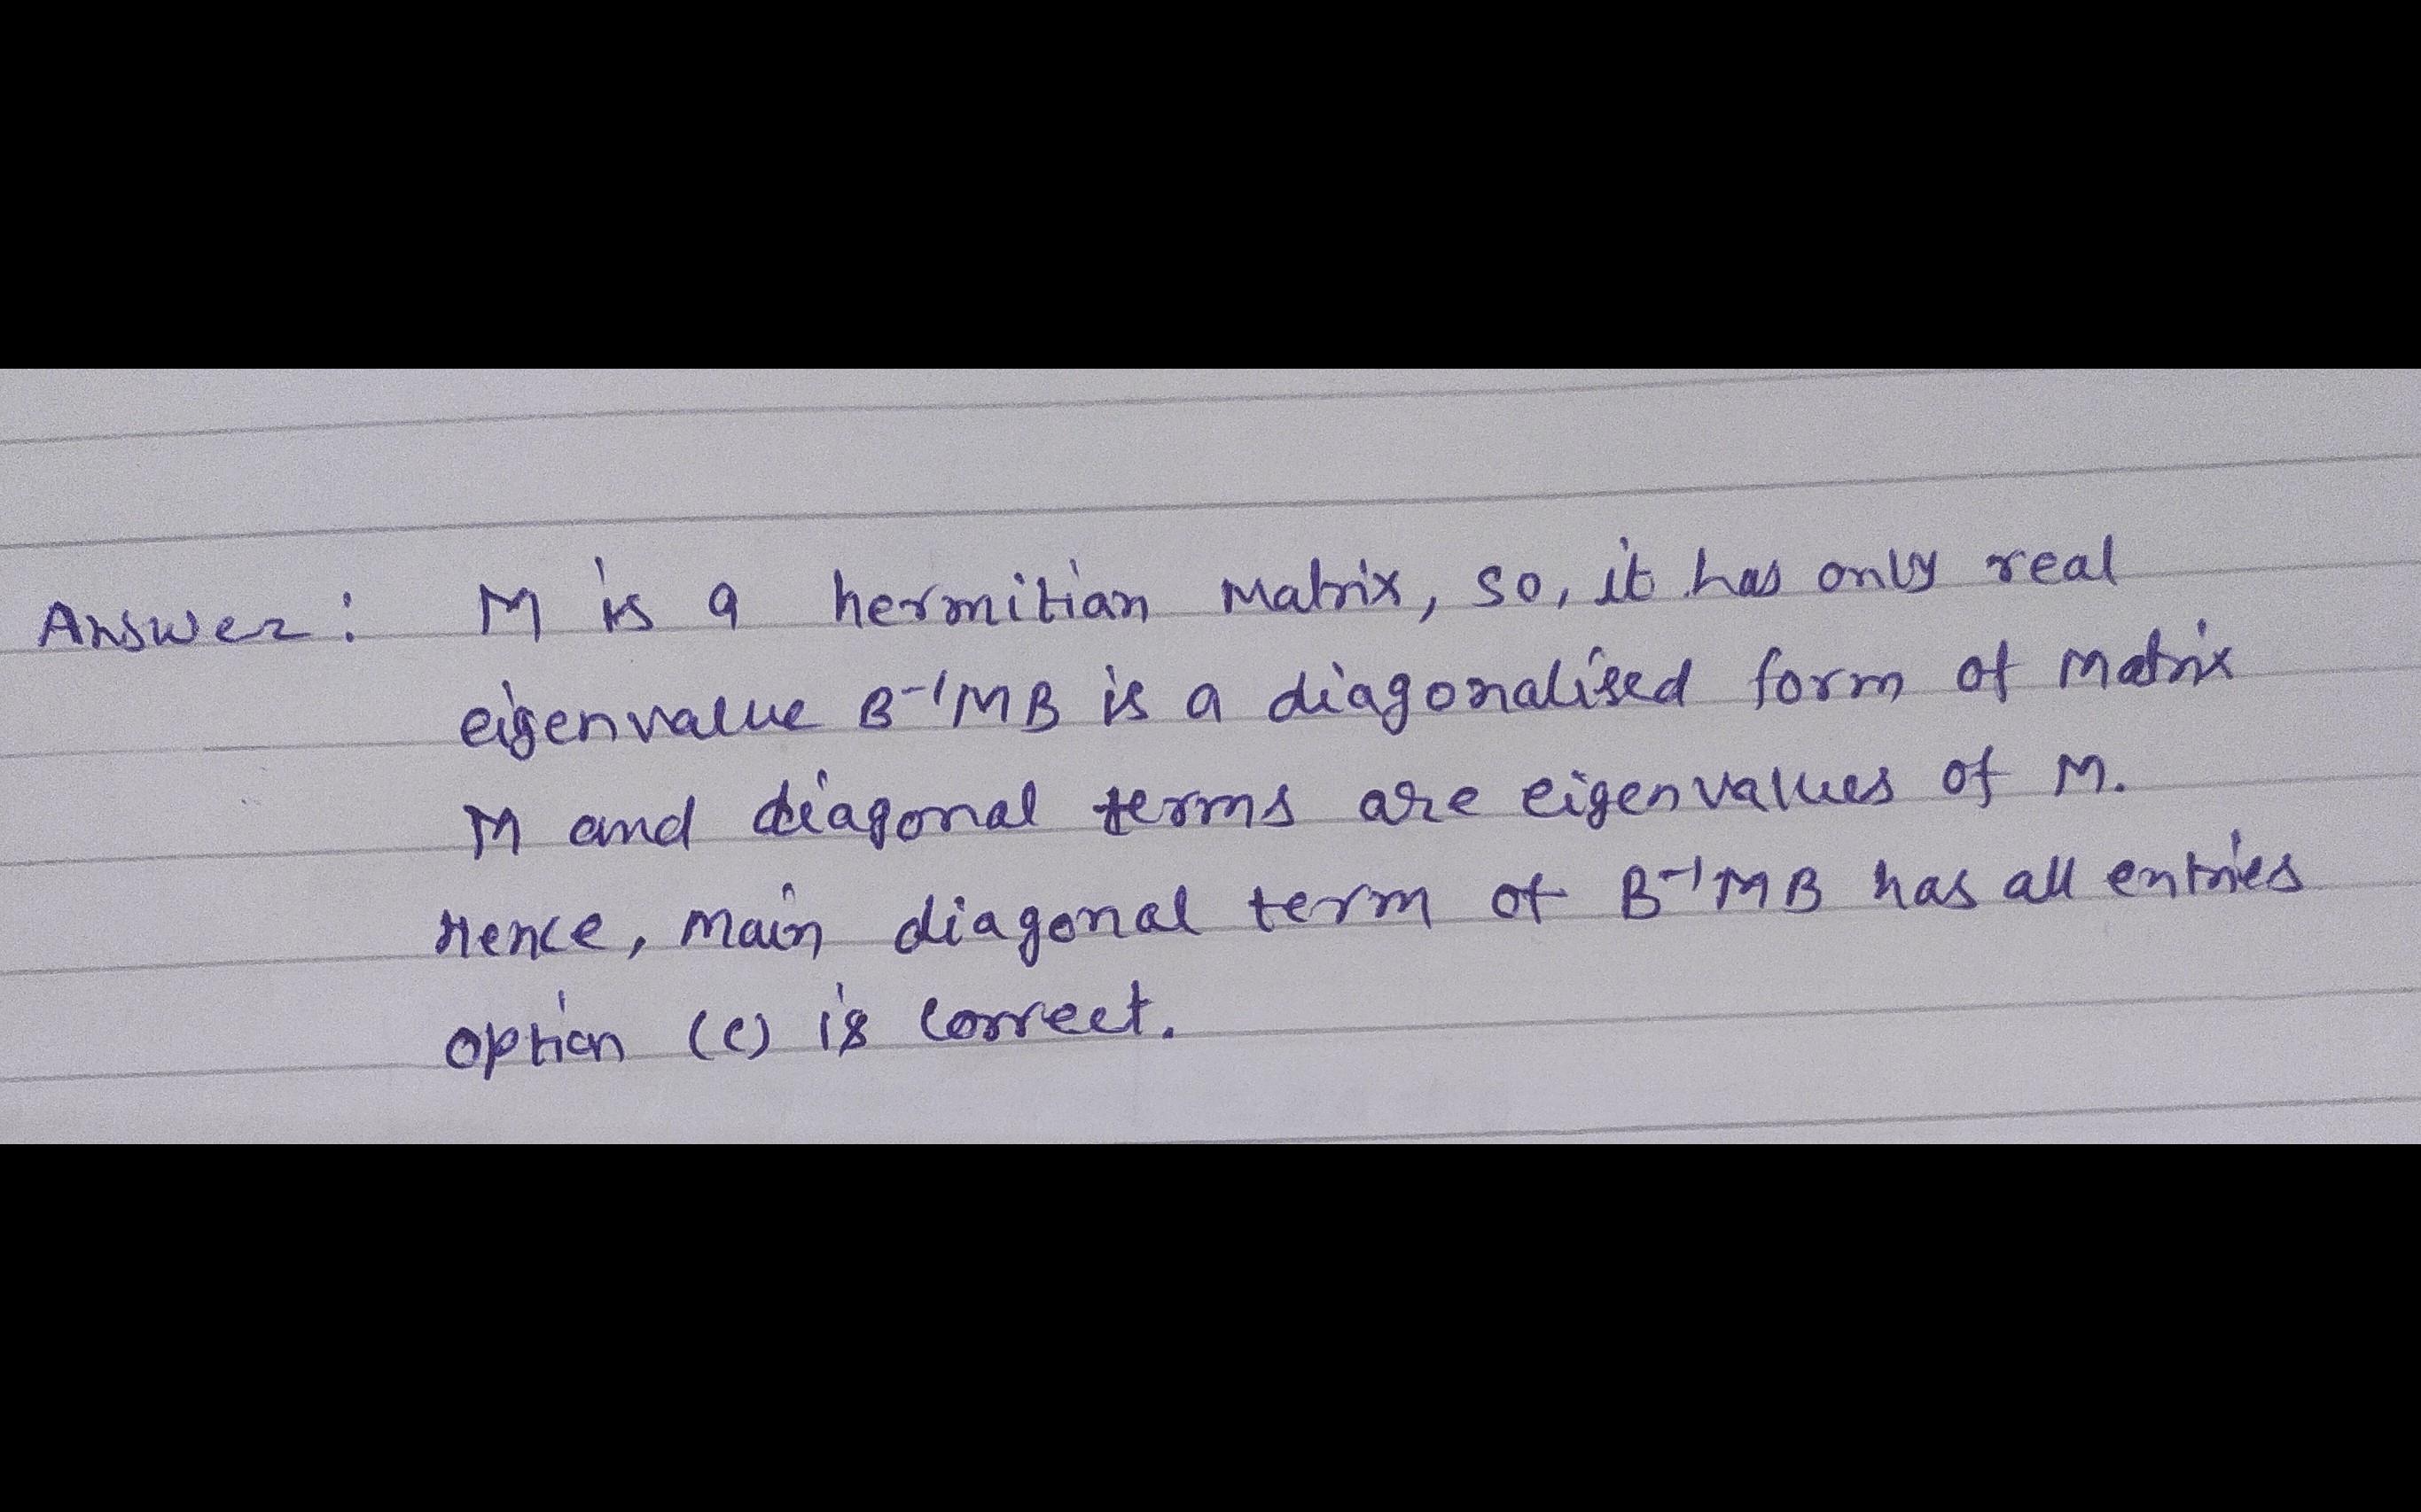 Answer: M is a hermitian Matrix, so, it has only real
eigenvalue B⁻¹MB is a diagonalised form of Matrix
M and diagonal terms are eigenvalues of M.
Hence, Main diagonal term of B⁻¹MB has all entries
option (c) is correct.